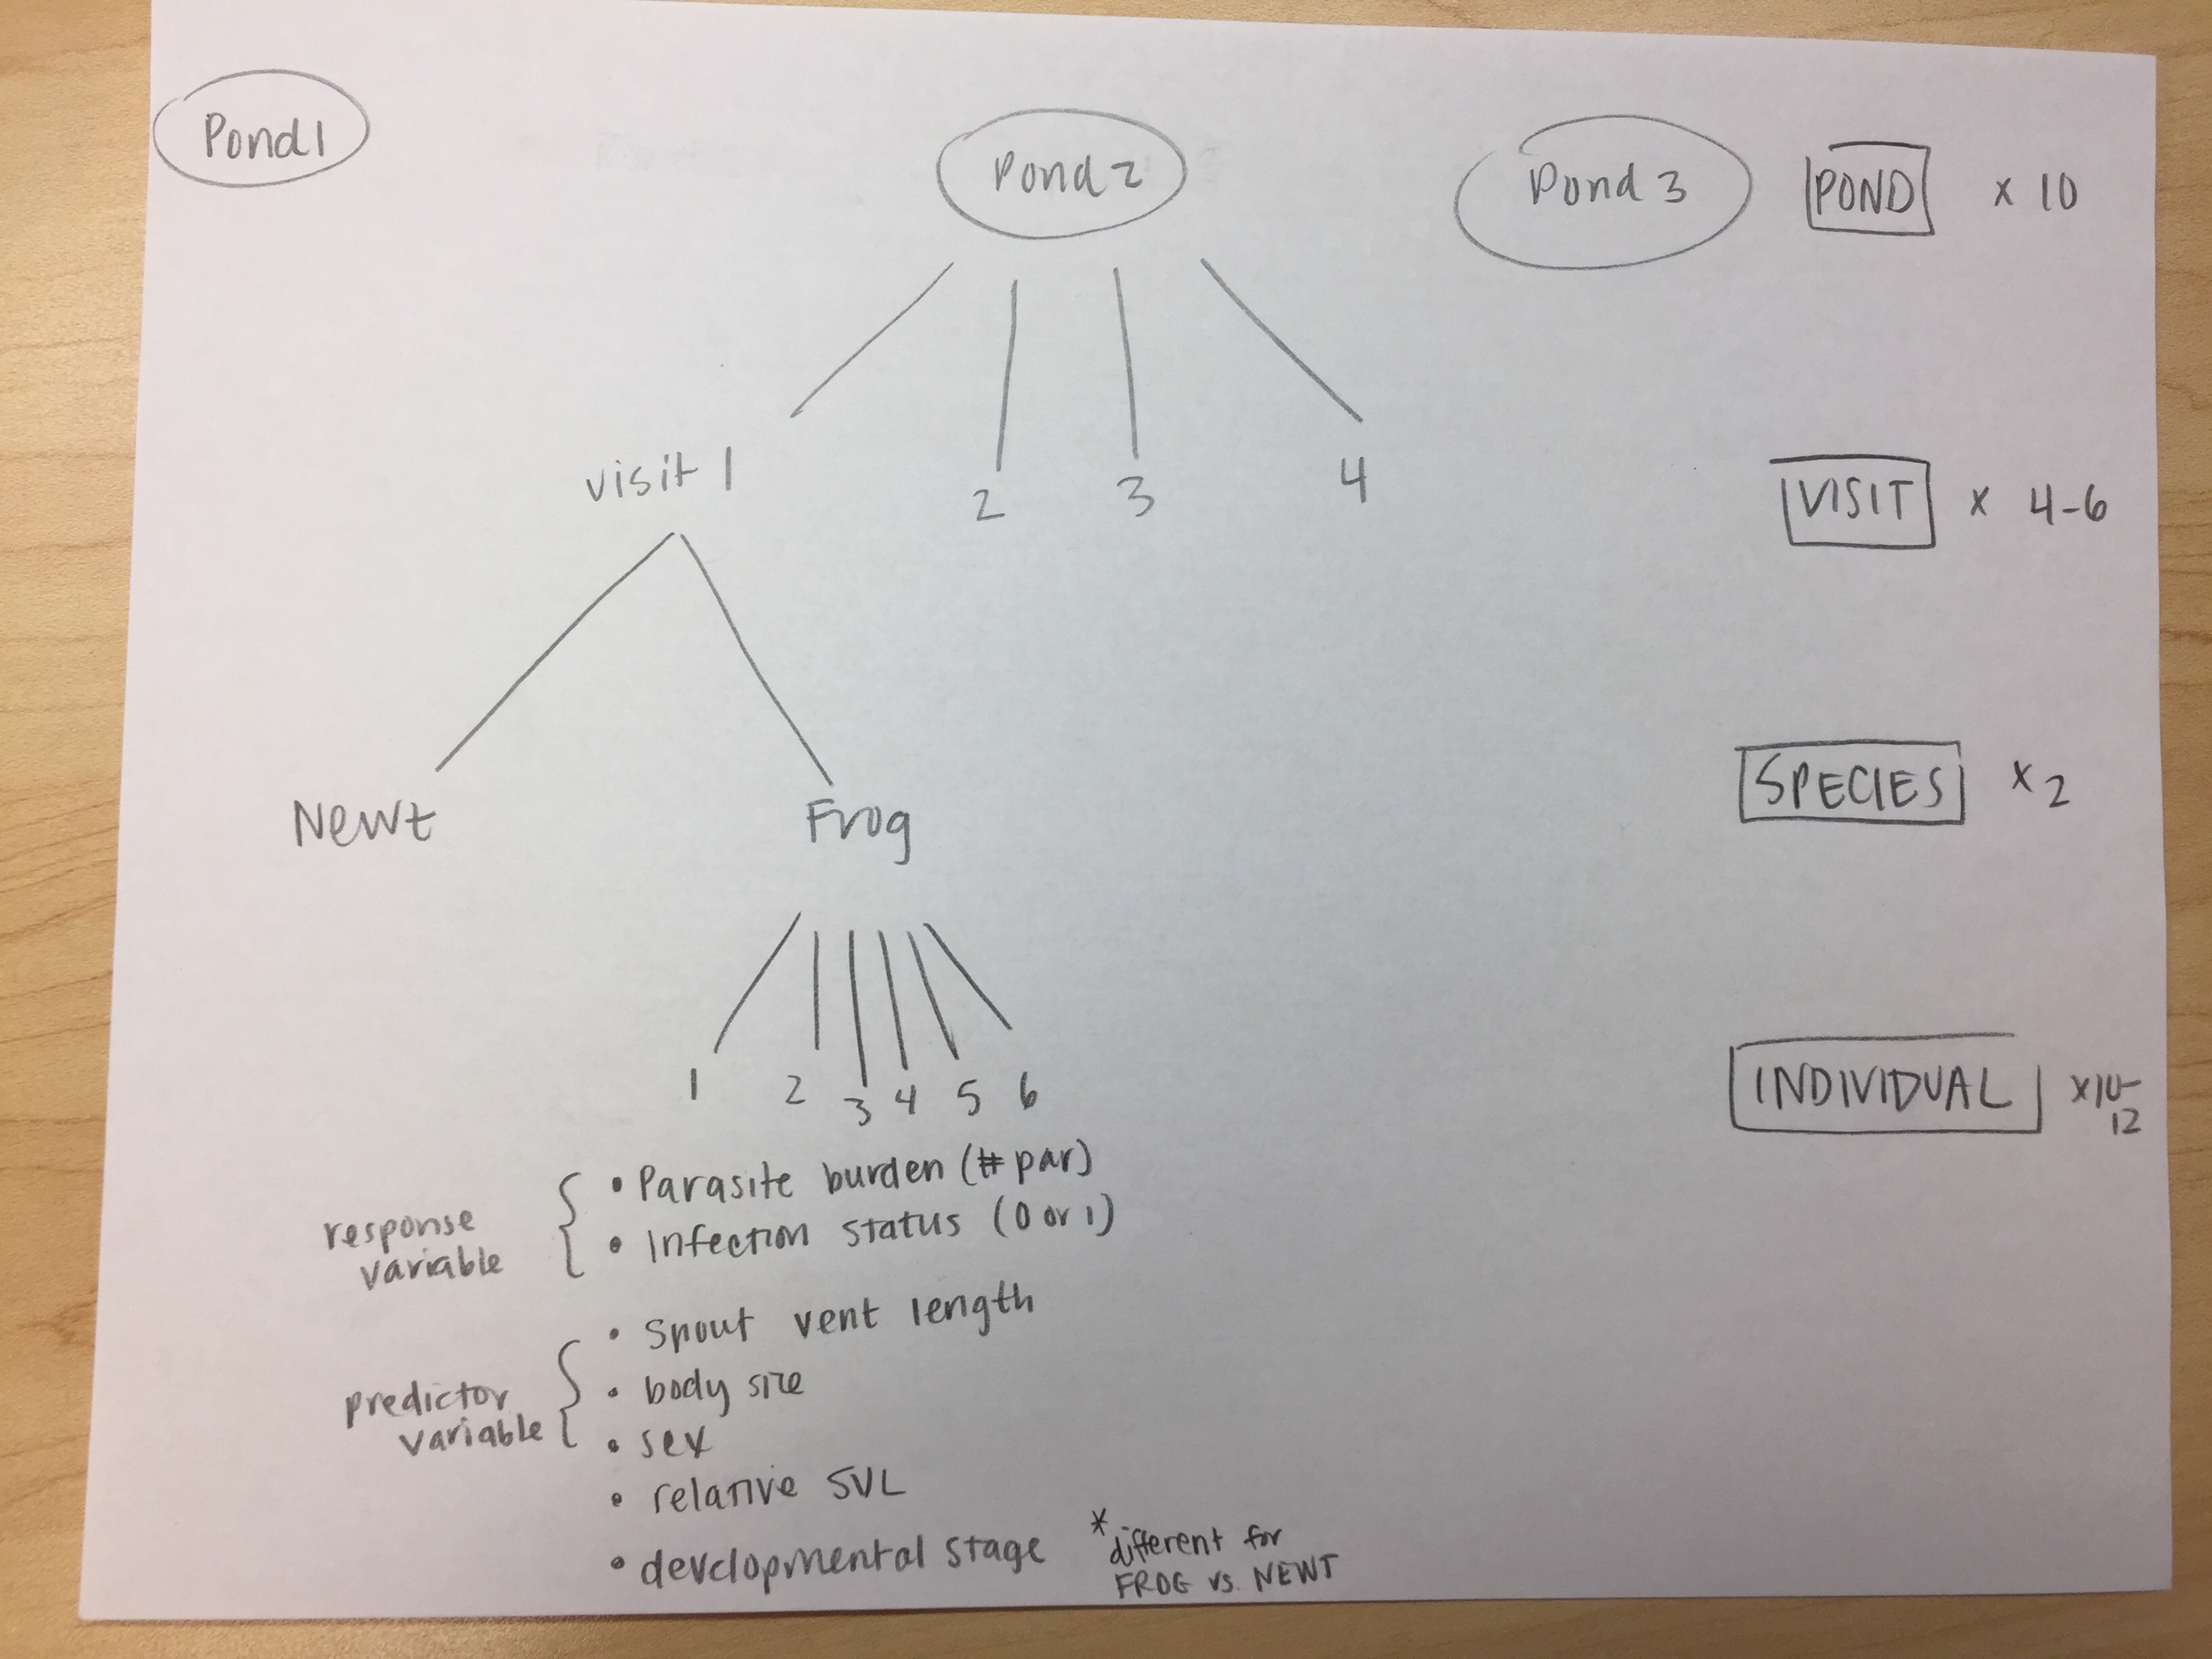 Pond 1
Pond 2
Pond 3
POND x 10
visit 1
2
3
4
VISIT x 4-6
Newt
Frog
SPECIES x 2
1 2 3 4 5 6
INDIVIDUAL x10-
12
response
variable
• Parasite burden (# par)
• Infection status (0 or 1)
predictor
variable
• Snout vent length
• body size
• sex
• relative SVL
• developmental stage
* different for
FROG vs. NEWT